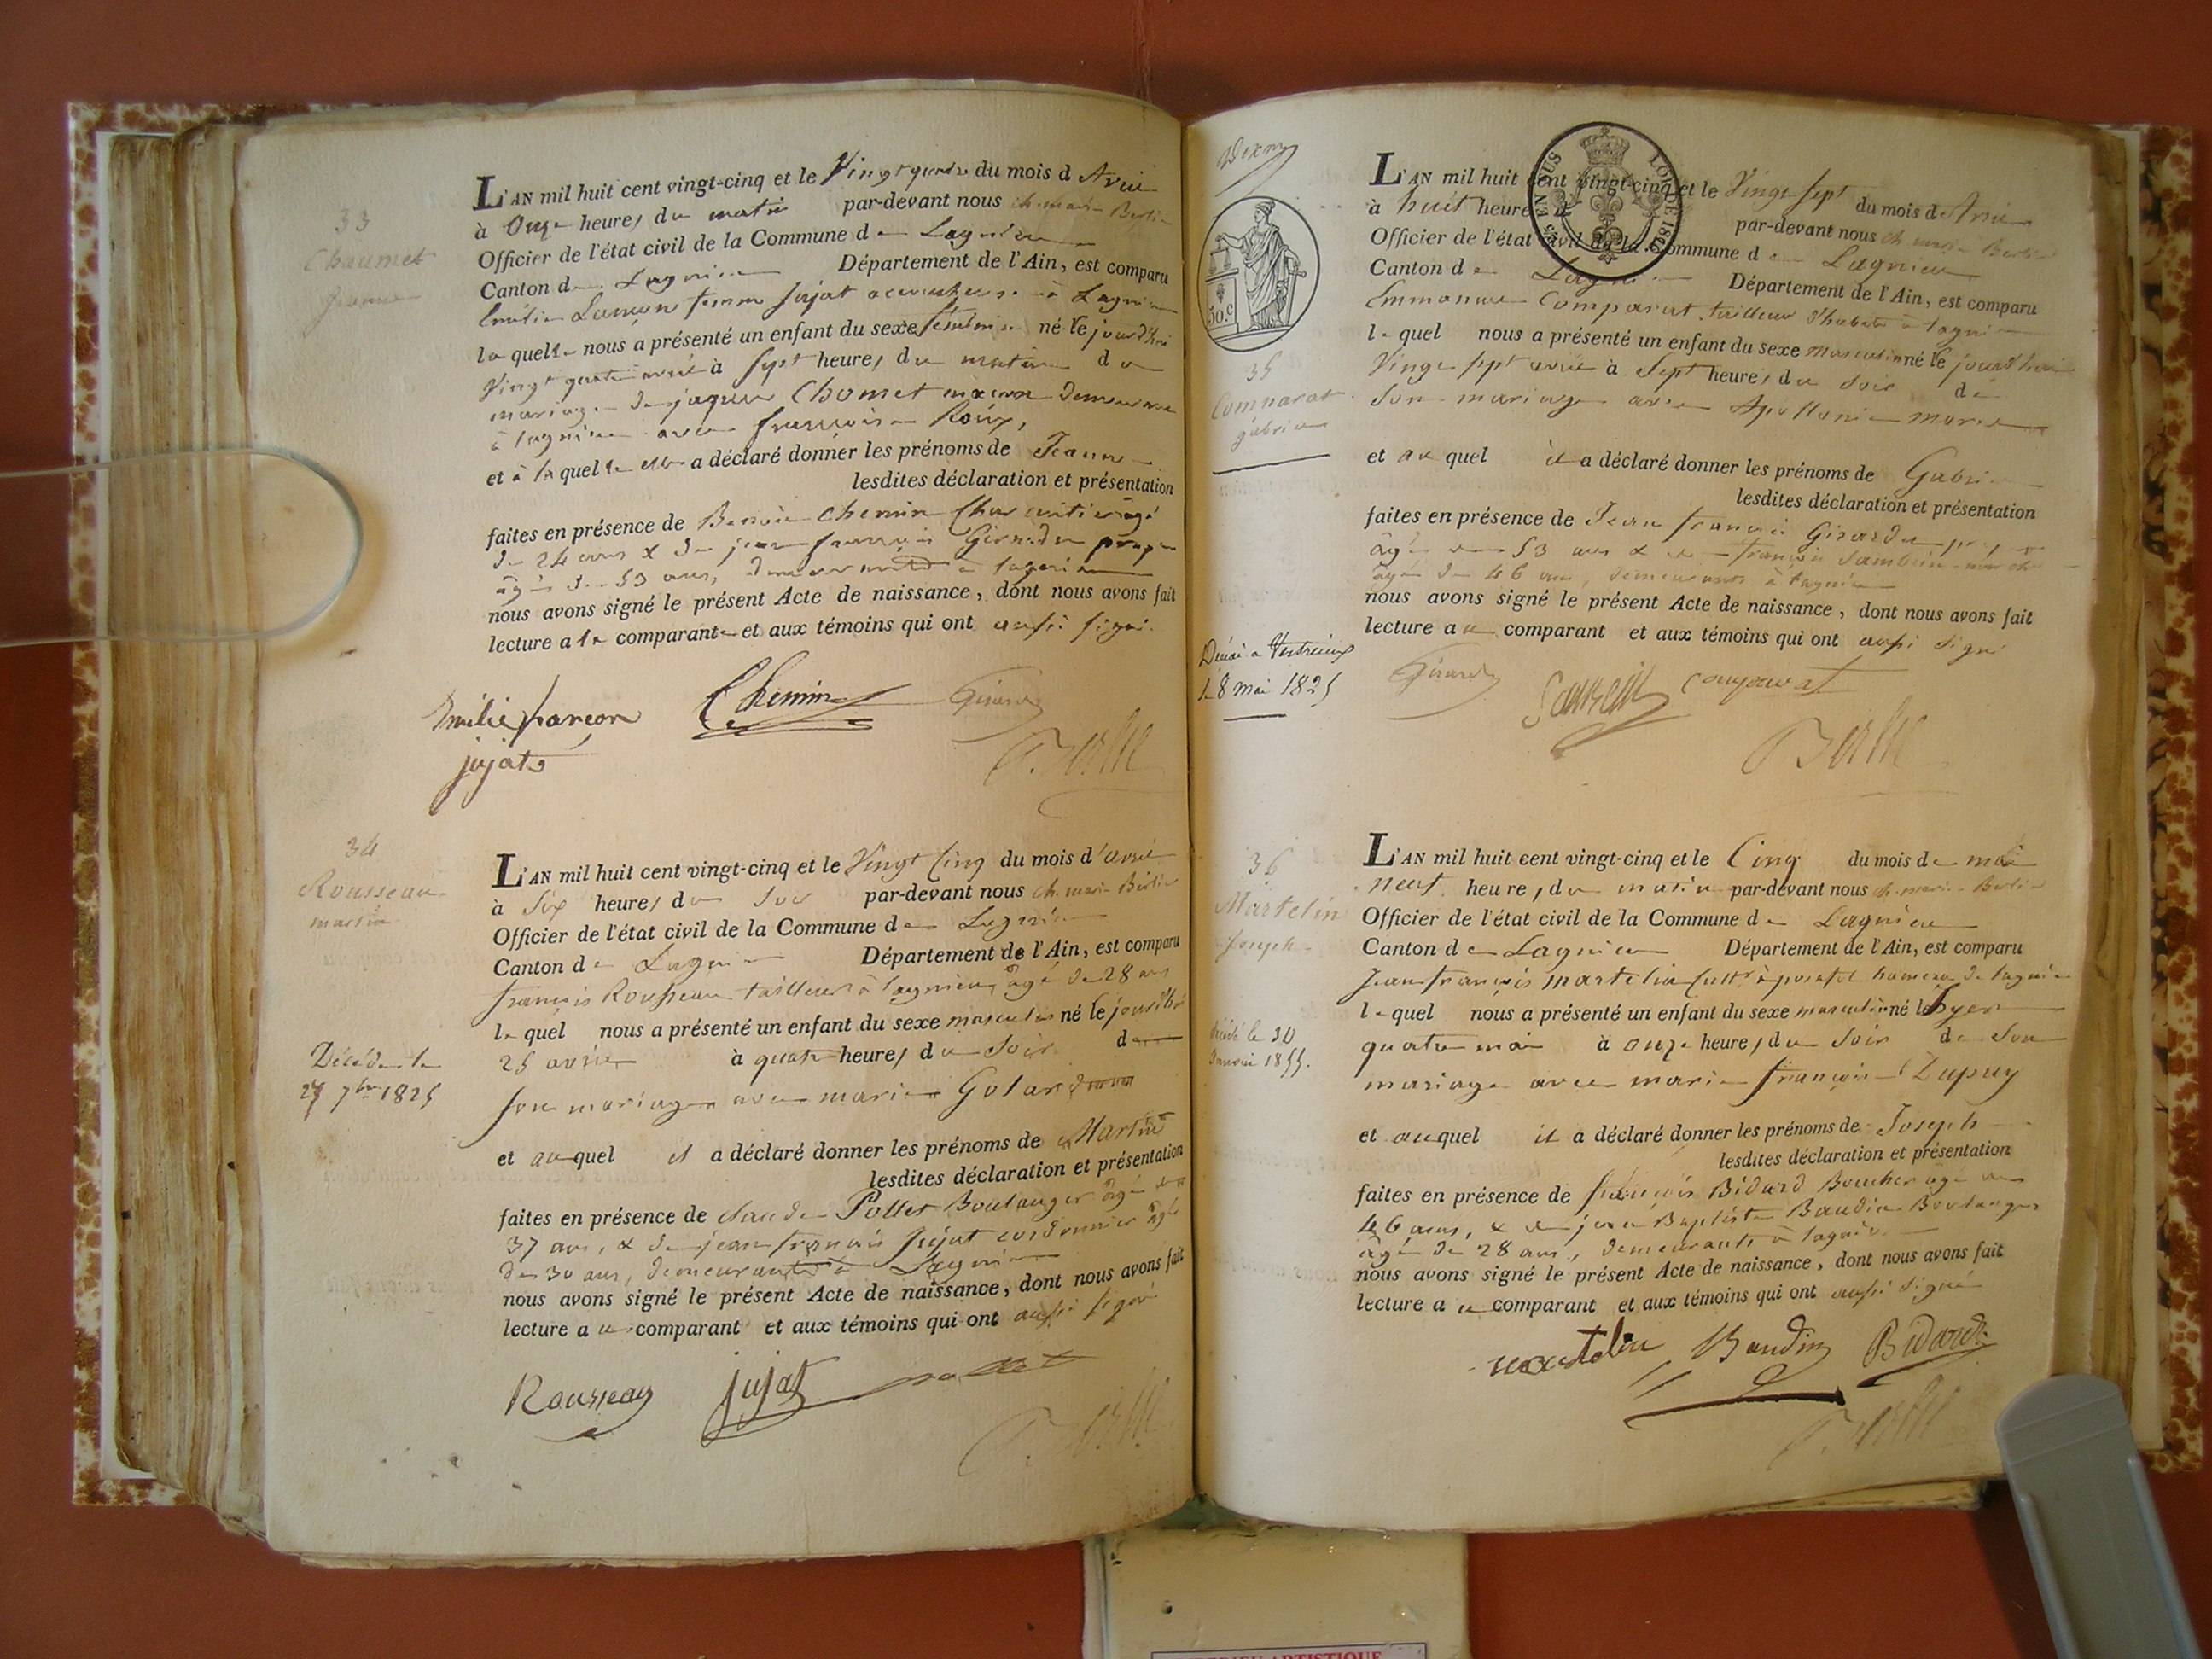 33
Chaumet
Jeanne
L'AN mil huit cent vingt-cinq et le Vingt quatre du mois d Avril
à Onze heures du matin par-devant nous ch. marie Berlie
Officier de l'état civil de la Commune de Lagnieu
Canton de Lagnieu Département de l'Ain, est comparu
Emilie Lançon femme Jujat accoucheuse à Lagnieu
laquelle nous a présenté un enfant du sexe féminin né le jourd'hui
Vingt quatre avril à sept heures du matin du
mariage de jaques Chomet maçon demeurant
à lagnieu avec françoise Roux,
et à laquelle elle a déclaré donner les prénoms de Jeanne
lesdites déclaration et présentation
faites en présence de Benoit Chemin âgé
de 24 ans & de jean françois Girardin
âgé de 53 ans, demeurants à lagnieu
nous avons signé le présent Acte de naissance, dont nous avons fait
lecture a la comparante et aux témoins qui ont aussi signé.
Emilie Lançon Chemin
jujat
34
Rousseau
martin
L'AN mil huit cent vingt-cinq et le Vingt Cinq du mois d'avril
à Six heures du soir par-devant nous ch. marie Berlie
Officier de l'état civil de la Commune de Lagnieu
Canton de Lagnieu Département de l'Ain, est comparu
françois Rousseau tailleur à lagnieu, âgé de 28 ans
lequel nous a présenté un enfant du sexe masculin né le jourd'hui
25 avril à quatre heures du soir de
son mariage avec marie
et auquel il a déclaré donner les prénoms de Martin
lesdites déclaration et présentation
faites en présence de claude Pollet Boulanger âgé de
37 ans, & de jean françois Jujat cordonnier âgé
de 30 ans, demeurants à Lagnieu
nous avons signé le présent Acte de naissance, dont nous avons fait
lecture a u comparant et aux témoins qui ont aussi signé
Décédé le
27 7bre 1825
Rousseau jujat pollet
50 c.
35
Comparat
gabriel
L'AN mil huit cent vingt-cinq et le Vingt sept du mois d Avril
à huit heures par-devant nous ch marie Berlie
Officier de l'état civil de la Commune de Lagnieu
Canton de Lagnieu Département de l'Ain, est comparu
Emmanuel Comparat tailleur d'habits à lagnieu
lequel nous a présenté un enfant du sexe masculin né le jourd'hui
Vingt sept avril à Sept heures du Soir de
Son mariage avec Apollonie
et auquel il a déclaré donner les prénoms de Gabriel
lesdites déclaration et présentation
faites en présence de Jean françois Girardin
âgé de 53 ans & de françois
âgé de 46 ans, demeurants à lagnieu
nous avons signé le présent Acte de naissance, dont nous avons fait
lecture a u comparant et aux témoins qui ont aussi signé
Décédé a
le 8 mai 1825
comparat
36
Martelin
Joseph
L'AN mil huit cent vingt-cinq et le Cinq du mois de mai
neuf heures du matin par-devant nous ch. marie Berlie
Officier de l'état civil de la Commune de Lagnieu
Canton de Lagnieu Département de l'Ain, est comparu
Jean françois martelin cultr à hameau de lagnieu
lequel nous a présenté un enfant du sexe masculin né le hyer
quatre mai à onze heures du Soir de Son
mariage avec marie françoise Dupuy
et auquel il a déclaré donner les prénoms de Joseph
lesdites déclaration et présentation
faites en présence de françois Bidard Boucher âgé de
46 ans, & de jean Baptiste Baudin Boulanger
âgé de 28 ans, demeurants à lagnieu
nous avons signé le présent Acte de naissance, dont nous avons fait
lecture a u comparant et aux témoins qui ont aussi signé
Décédé le 30
Janvier 1855.
martelin Baudin Bidard